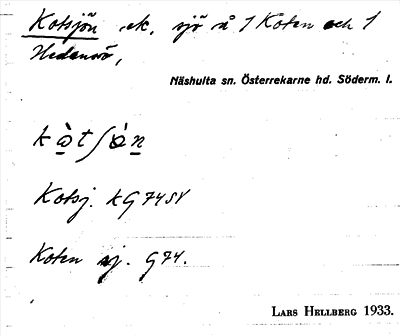 Kotsjön ek. sjö å 1 Koten och 1
Hedensö,
Näshulta sn. Österrekarne hd. Söderm. l.
kò̱tʃö̀n̲
Kotsj. kG 74 SV
Koten sj. G74.
LARS HELLBERG 1933.